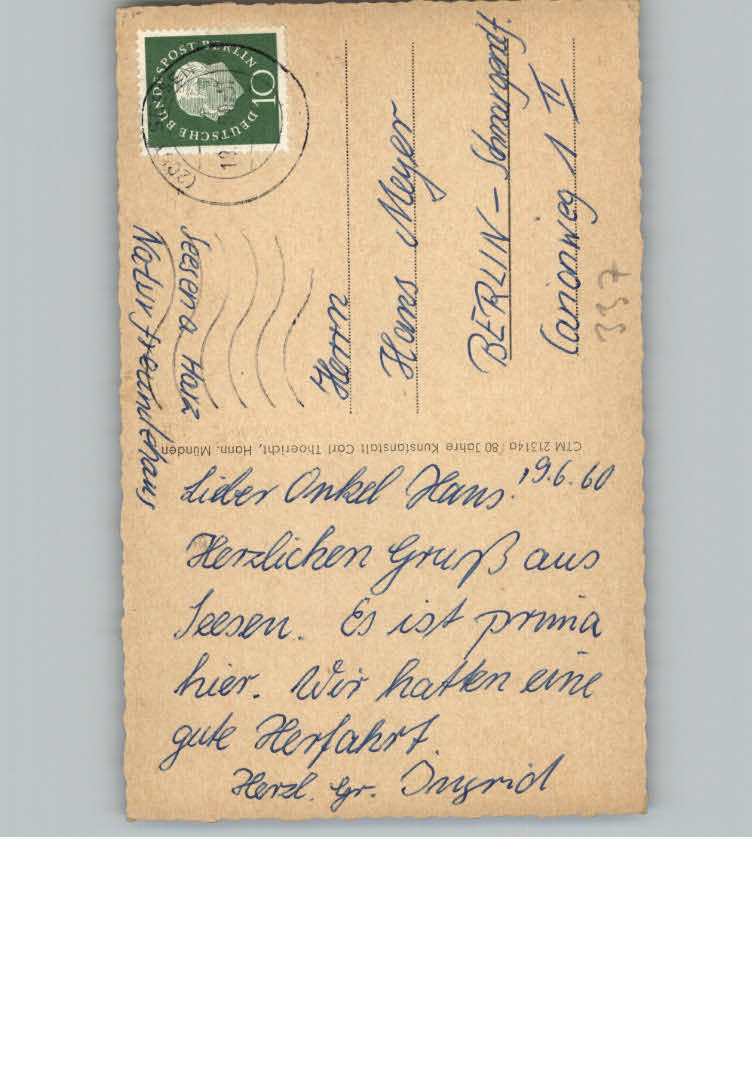 DEUTSCHE BUNDESPOST BERLIN
10
Seesen a Harz
Naturfreundehaus
Herrn
Hans Meyer
BERLIN - Schmargendf.
1 II
337
CTM 21314a / 80 Jahre Kunstanstalt Carl Thoericht, Hann. Münden
19.6.60
Lieber Onkel Hans!
Herzlichen Gruß aus
Seesen. Es ist prima
hier. Wir hatten eine
gute Herfahrt.
Herzl. Gr. Ingrid